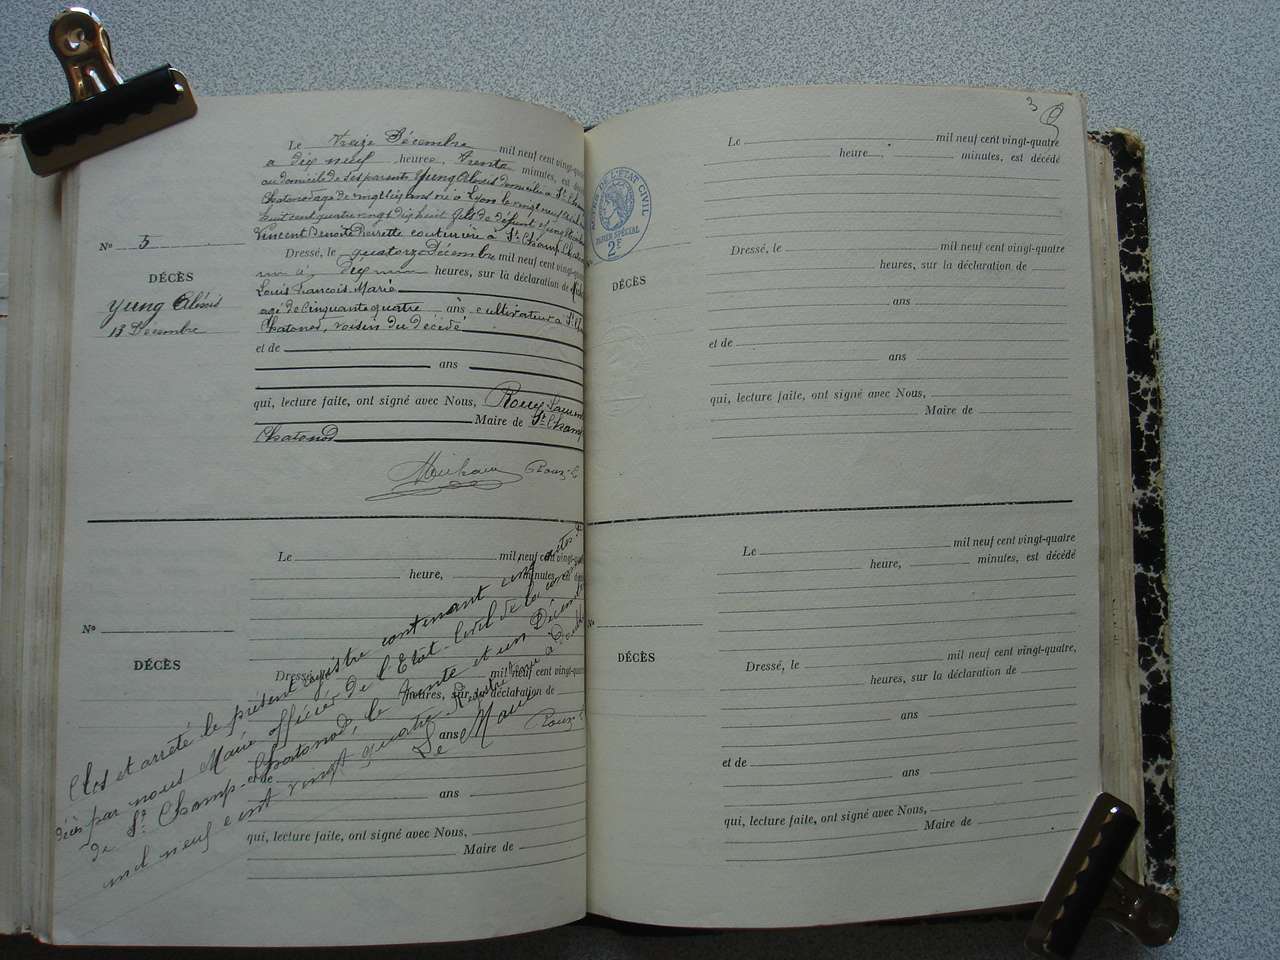 Le treize Décembre mil neuf cent vingt-quatre
à dix neuf heures, trente minutes, est
au domicile de ses parents Yung Alexis domicilié à St Champ
Chatonod âgé de vingt six ans né à Lyon le vingt neuf
huit cent quatre vingt dix huit fils de défunt Yung
Vincent Benoîte Pierrette couturière à St Champ
No 5
Dressé, le quatorze Décembre mil neuf cent vingt-quatre
à dix heures, sur la déclaration de
DÉCÈS
Louis François Marie
Yung Alexis
âgé de cinquante quatre ans cultivateur à St
13 Décembre
Chatonod, voisin du décédé
et de
ans
qui, lecture faite, ont signé avec Nous, Roux
Maire de St Champ
Chatonod
Michaux Roux
Le mil neuf cent vingt-quatre
heure, minutes, est
No
DÉCÈS
Dressé, le mil neuf cent vingt-quatre
heures, sur la déclaration de
ans
et de
ans
qui, lecture faite, ont signé avec Nous,
Maire de
Clos et arrêté le présent registre contenant cinq actes de
décès par nous Maire officier de l'Etat-Civil de la commune
de St Champ-Chatonod, le trente et un Décembre
mil neuf cent vingt quatre
Le Maire
Roux
3
TIMBRE DE L'ETAT CIVIL
PAPIER SPÉCIAL
2F
Le mil neuf cent vingt-quatre
heure, minutes, est décédé
Dressé, le mil neuf cent vingt-quatre
heures, sur la déclaration de
DÉCÈS
ans
et de
ans
qui, lecture faite, ont signé avec Nous,
Maire de
Le mil neuf cent vingt-quatre
heure, minutes, est décédé
No
DÉCÈS
Dressé, le mil neuf cent vingt-quatre,
heures, sur la déclaration de
ans
et de
ans
qui, lecture faite, ont signé avec Nous,
Maire de